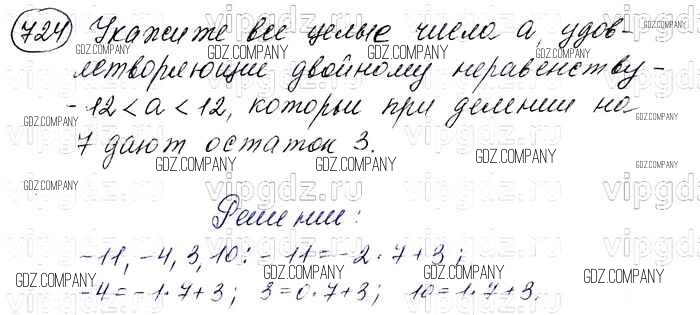 724 Укажите все целые числа a, удов-
летворяющие двойному неравенству -
-12 < a < 12, которые при делении на
7 дают остаток 3.
Решение:
-11, -4, 3, 10: -11 = -2 · 7 + 3;
-4 = -1 · 7 + 3; 3 = 0 · 7 + 3; 10 = 1 · 7 + 3.
GDZ.COMPANY
vipgdz.ru